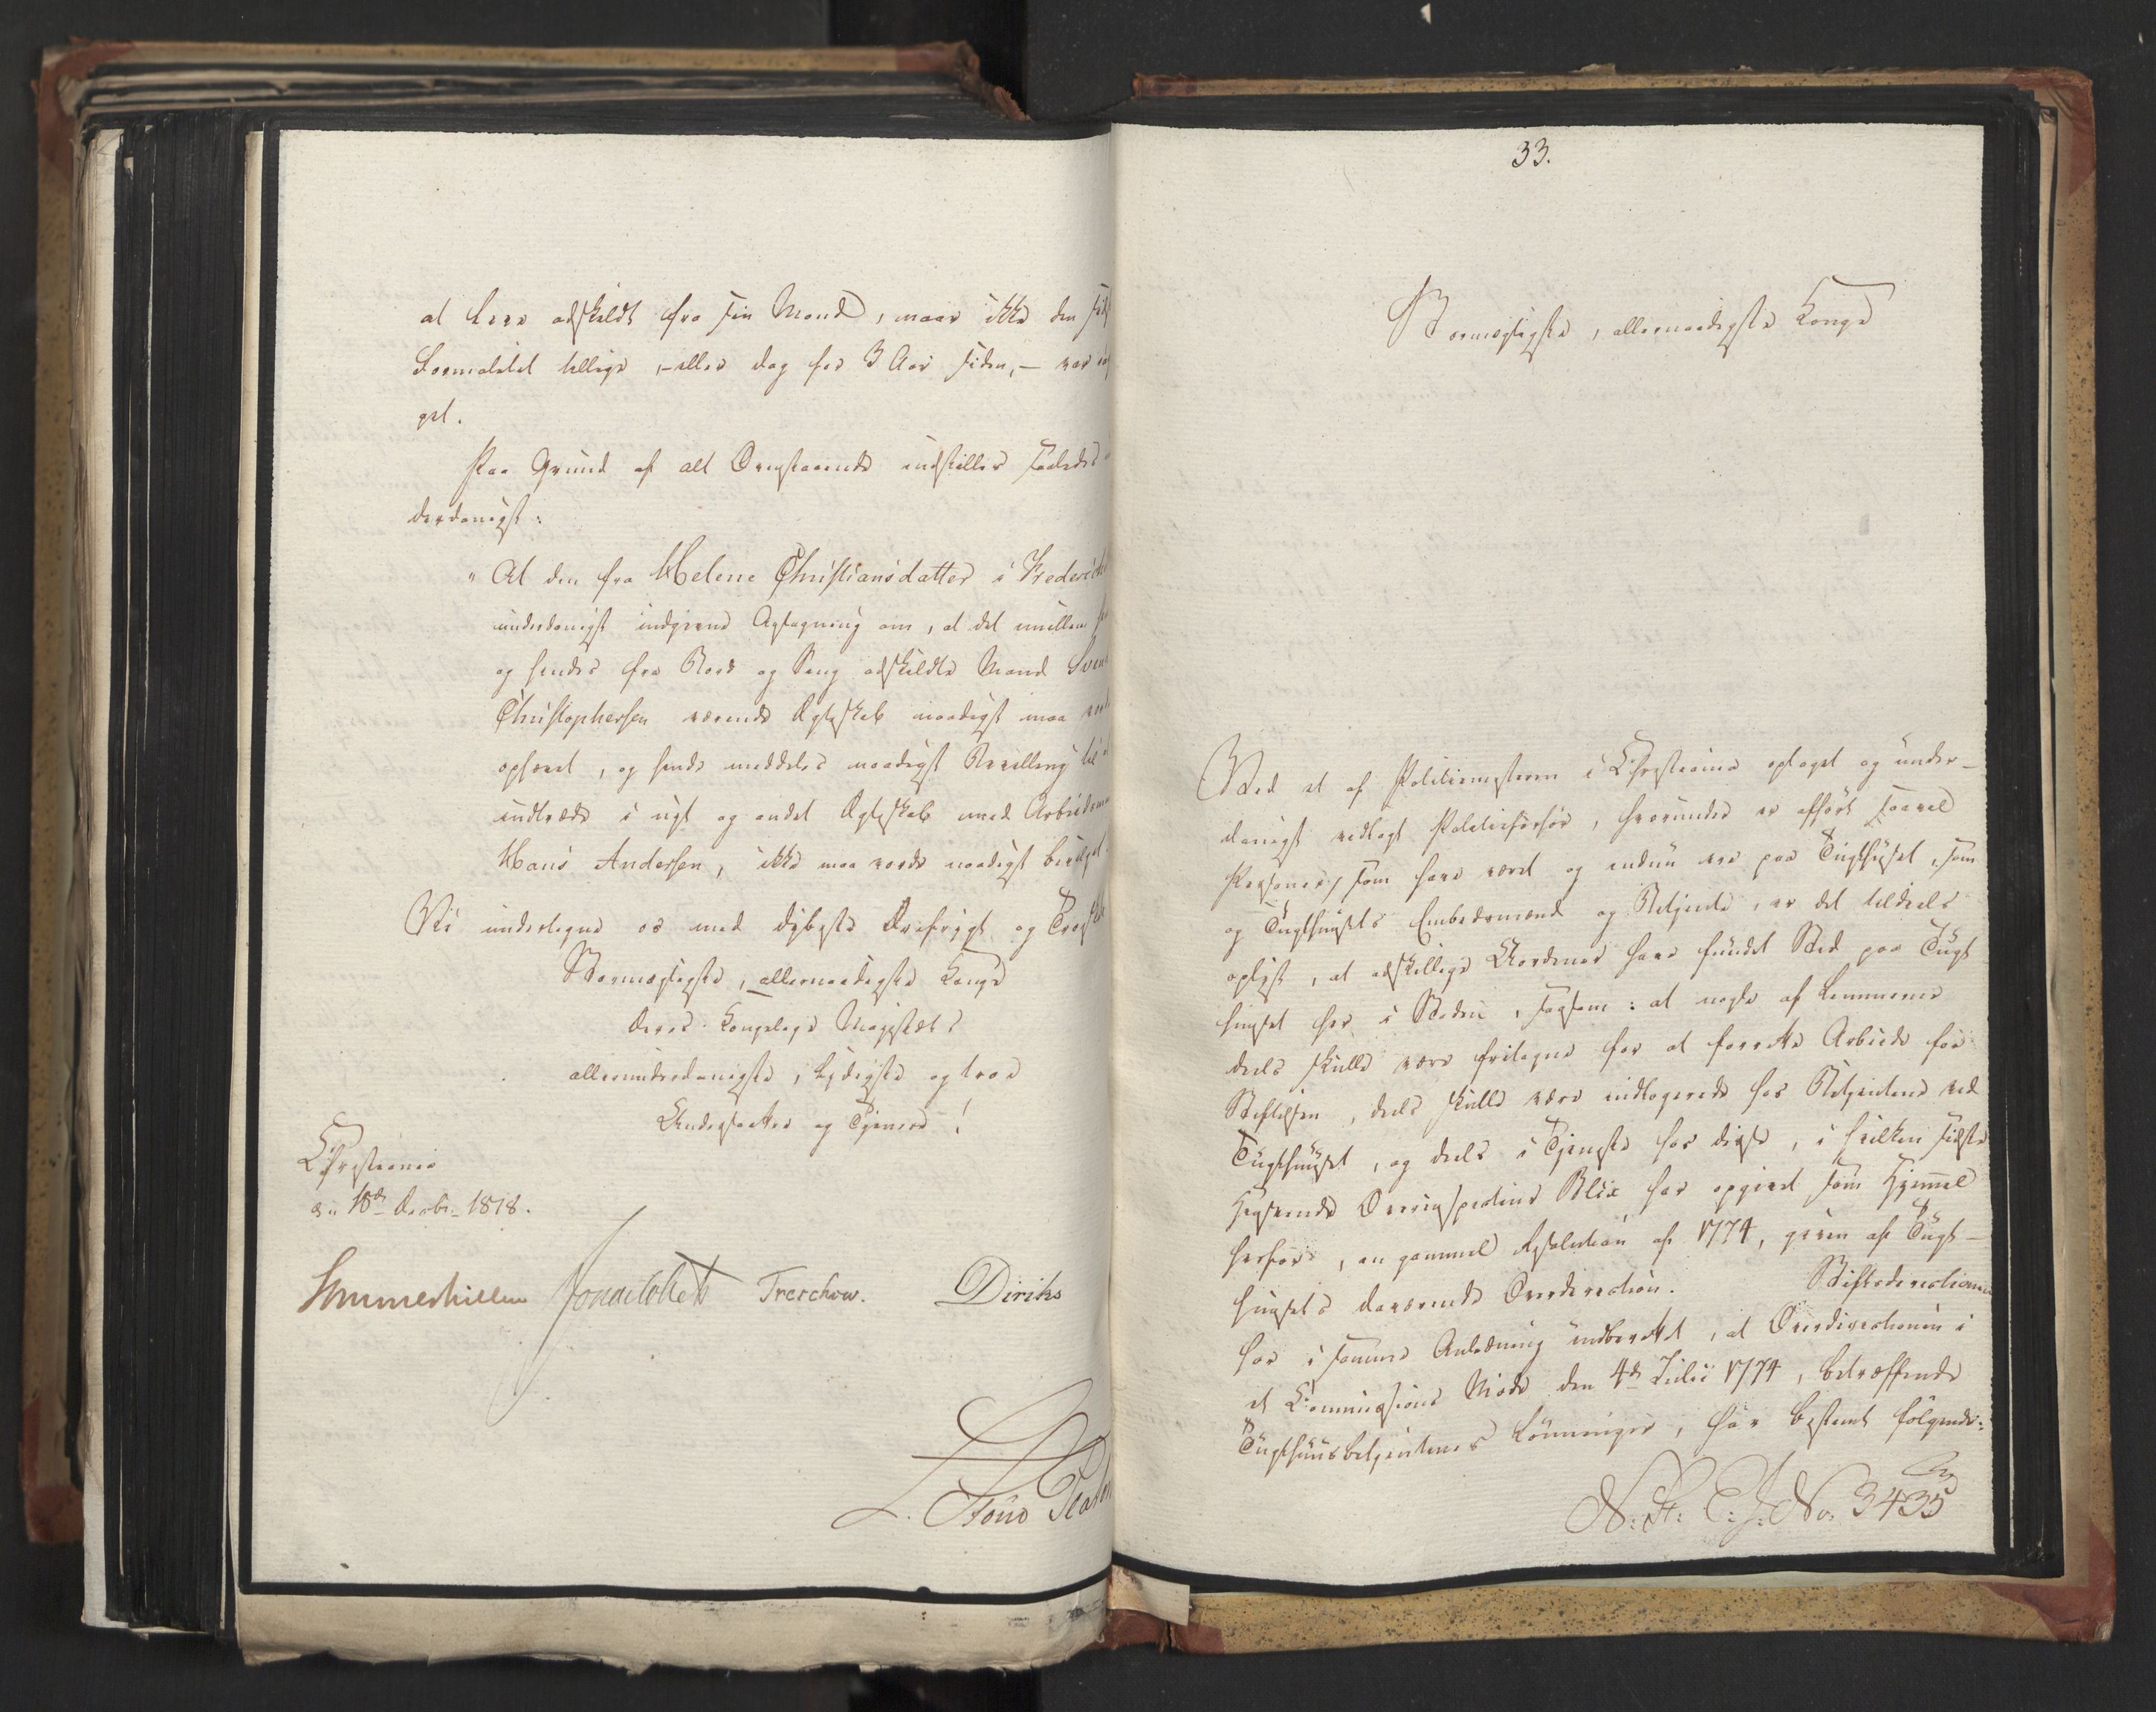 at leve adskildt fra sin Mand, naar ikke den
Formalitet tillige, - eller dog for 3 Aar siden, - var
get.
Paa Grund af alt Ovenstaaende indstilles saaledes
derdanigst:
" At den fra Helene Christiansdatter i Frederick
underdanigst indgivne Ansøgning om, at det imellem
og hendes fra Bord og Seng adskildte Mand Svend
Christophersen værende Ægteskab naadigst maa
ophævet, og hende meddeles naadigst Bevilling til
indtræde i nyt og andet Ægteskab med Arbeidsma
Hans Andersen, ikke maa vorde naadigst bevilget.
Vi undertegne os med dybeste Ærefrygt og Troskab
Stormægtigste, allernaadigste Konge
Deres Kongelige Majestæts
allerunderdanigste, lydigste og troe
Undersaatter og Tjenere!
Christiania
den 18d Decbr 1818.
Sommerhielm Jonas Collett Treschow. Diriks
33.
Stormægtigste, allernaadigste Konge
Ved et af Politiemesteren i Christiania optaget og under-
danigst vedlagt Politieforhør, hvorunder er afhørt saavel
Personer, som have været og endnu ere paa Tugthuset, som
og Tugthusets Embedsmænd og Betjente, er det tildeels
oplyst, at adskillige Uordener have fundet Sted paa Tugt
huuset her i Staden, saasom: at nogle af Lemmerne
deels skulle være fritagne for at forrette Arbeide for
Stiftelsen, deels skulle være indlogerede hos Betjentene ved
Tugthuuset, og deels i Tjeneste hos disse, i hvilken sidste
Henseende Overinspecteur Blix har opgivet som Hjemmel
herfor, en gammel Resolution af 1774, given af Tugt-
huusets daværende Overdirection. Stiftsdirectionen
har i samme Anledning indberettet, at Overdirectionen i
et Commissions Møde den 4de Julii 1774, betræffende
Tugthuusbetjentenes Lønninger, har bestemt følgende:
No. 3435